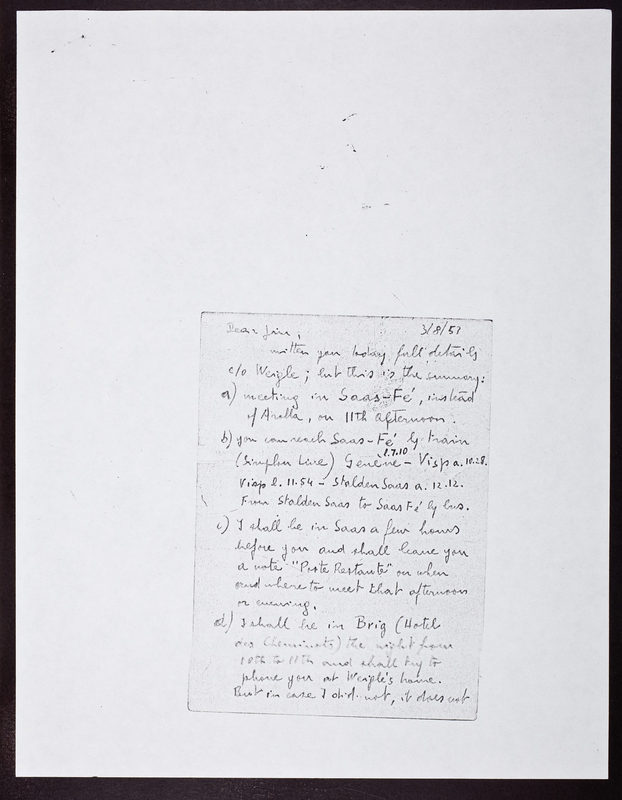 Dear Jim, 3/8/53
written you today full details
c/o Weigle; but this is the summary:
a) meeting in Saas-Fé, instead
of Arolla, on 11th afternoon.
b) you can reach Saas-Fé by train
(Simplon Line) Genève l.7.10 – Visp a. 10.28.
Visp l. 11.54 – Stalden Saas a. 12.12.
From Stalden Saas to Saas Fé by bus.
c) I shall be in Saas a few hours
before you and shall leave you
a note "Poste Restante" on when
and where to meet that afternoon
or evening.
d) I shall be in Brig (Hotel
des Cheminots) the night from
10th to 11th and shall try to
phone you at Weigle's home.
But in case I did not, it does not